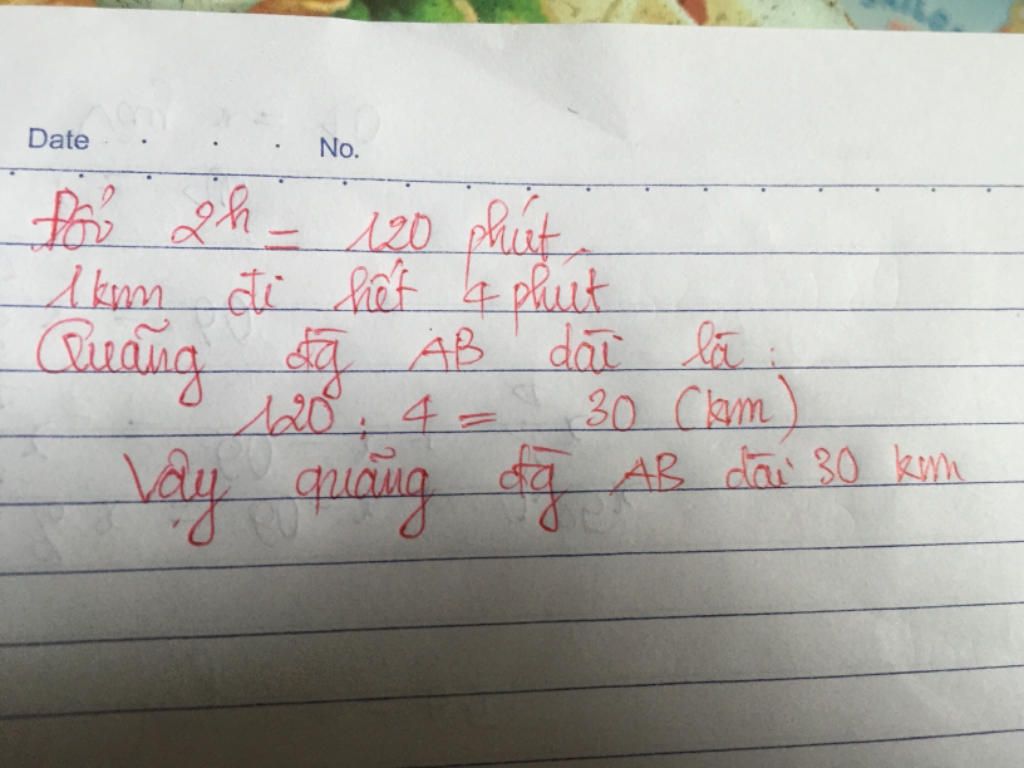 Date . . . No.
Đổi 2h = 120 phút
1km đi hết 4 phút
Quãng đg AB dài là :
120 : 4 = 30 (km)
Vậy quãng đg AB dài 30 km